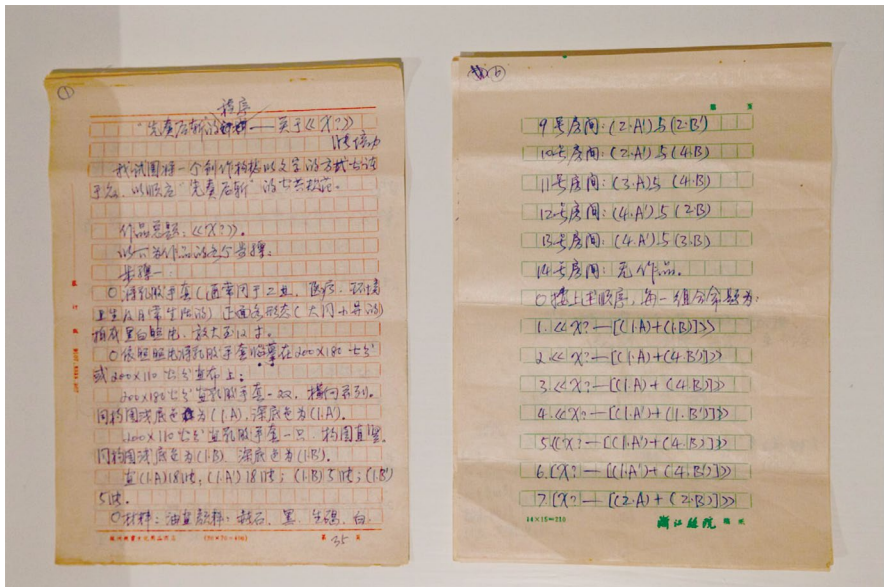 ①
程序
"先奏后斩的——关于《X?》
张培力
我试图将一个创作构想以文字的方式告诸
于众，以顺应"先奏后斩"的公共规范。
作品总题：《X?》。
以下为作品的几个步骤：
步骤一：
○ 将乳胶手套(通常用于工业、医疗、环境
卫生及日常生活的)正面形态(大同小异的)
拍成黑白照片，放大至12寸。
○ 依照照片将乳胶手套临摹在200×180公分
或200×110公分画布上：
200×180公分画乳胶手套一双，横向并列。
同构图浅底色为(1.A)，深底色为(1.A')。
200×110公分画乳胶手套一只，构图直竖。
同构图浅底色为(1.B)，深底色为(1.B')。
画(1.A)18块；(1.A')18块；(1.B)5块；(1.B')
5块。
○ 材料：油画颜料：赭石、黑、生褐、白、
(20×20=400)
第 35 页
⑥
第 页
9号房间：(2·A')与(2·B')
10号房间：(2·A')与(4·B)
11号房间：(3·A)与(4·B)
12号房间：(4·A')与(2·B)
13号房间：(4·A')与(3·B)
14号房间：无作品。
○ 按上述顺序，每一组合命题为：
1.《X?—[(1·A)+(1·B)]》
2.《X?—[(1·A)+(4·B')]》
3.《X?—[(1·A)+(4·B)]》
4.《X?—[(1·A')+(1·B')]》
5.《X?—[(1·A')+(4·B)]》
6.[X?—[(1·A')+(4·B')]》
7.[X?—[(2·A)+(2·B)]》
14×15=210
浙江美院 稿纸